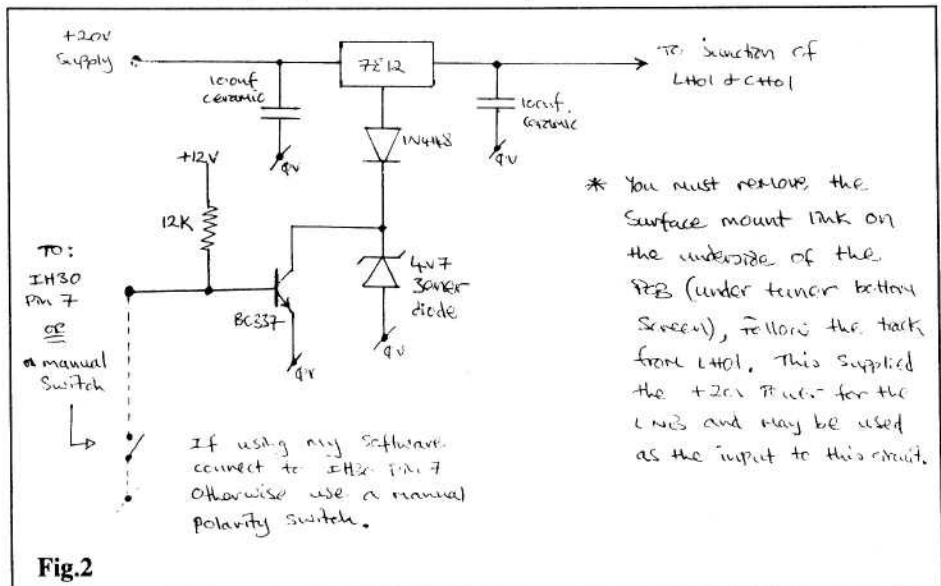 +20V
Supply
7812
To junction of
LH01 & CH01
100nf
ceramic
100nf.
ceramic
1N4148
0V
0V
+12V
12K
TO:
IH30
Pin 7
OR
a manual
Switch
BC337
4V7
Zener
diode
0V
0V
* You must remove the
Surface mount link on
the underside of the
PCB (under tuner bottom
Screen), Follow the track
from LH01. This Supplied
the +20V Power for the
LNB and may be used
as the input to this circuit.
If using my Software
connect to IH30 Pin 7
Otherwise use a manual
polarity switch.
Fig.2